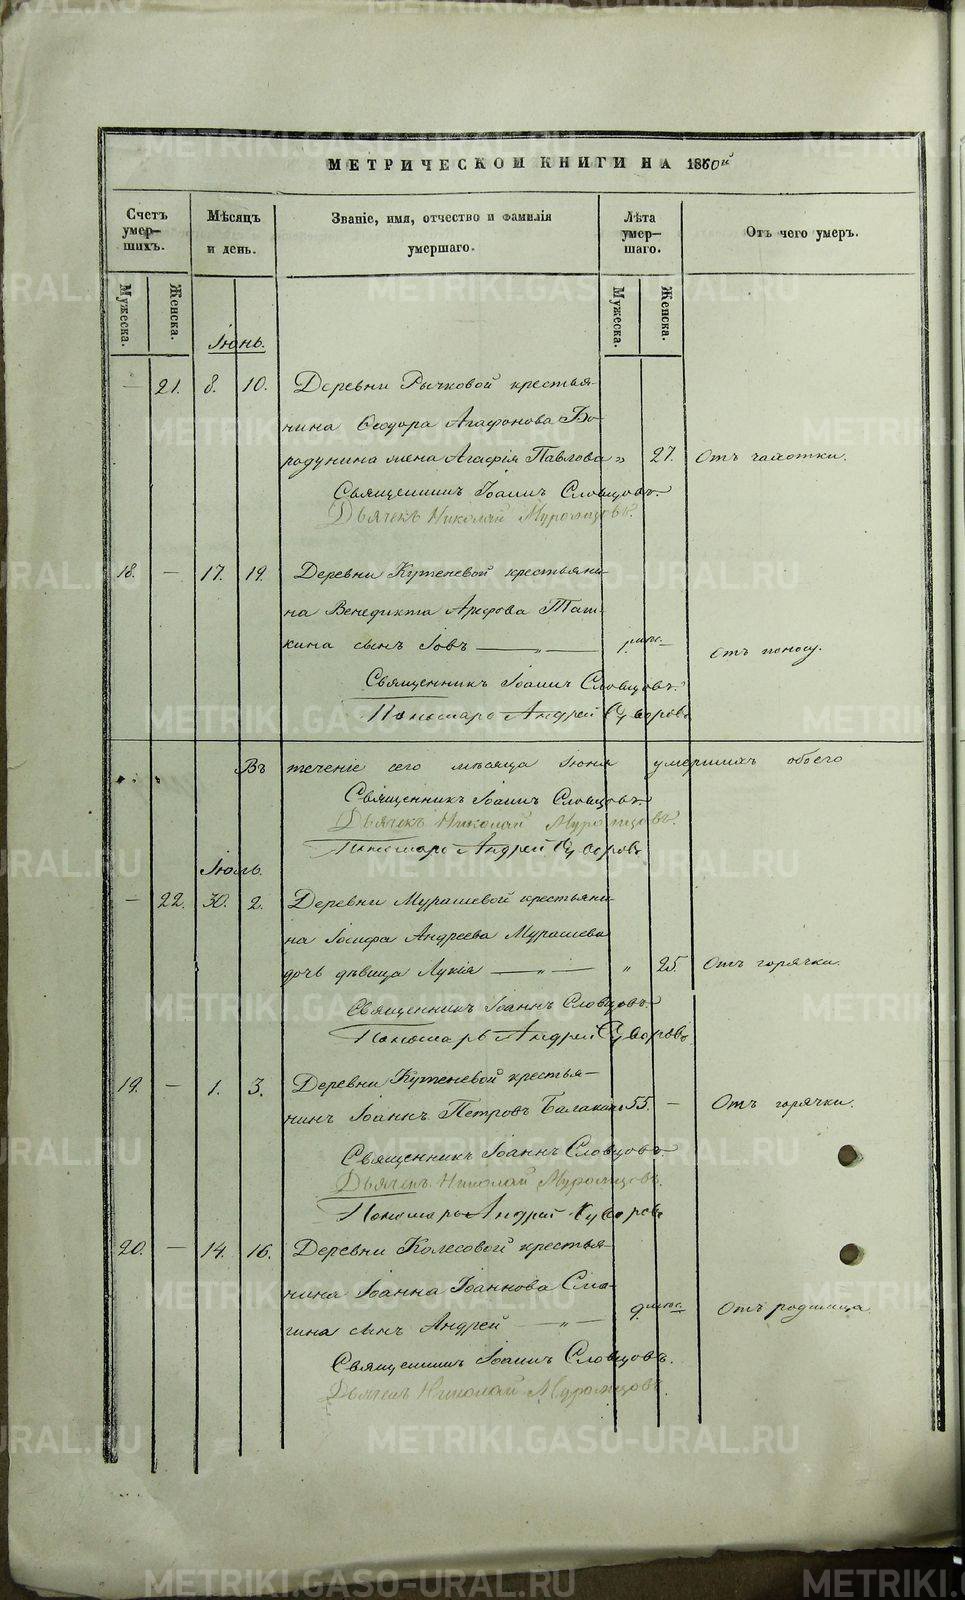 МЕТРИЧЕСКОЙ КНИГИ НА 1860й
Счетъ умер- шихъ.
Мѣсяцъ и день.
Званіе, имя, отчество и фамилія умершаго.
Лѣта умер- шаго.
Отъ чего умеръ.
Мужеска.
Женска.
Мужеска.
Женска.
Іюнь.
— 21. 8. 10. Деревни Рычковой крестья-
нина Ѳеодора Агафонова Бо-
родулина жена Агафія Павлова „ 27. Отъ чахотки.
Священникъ Іоаннъ Словцовъ.
Дьячекъ Николай Муромцовъ.
18. — 17. 19. Деревни Кутеневой крестьяни-
на Венедикта Арефова Таш-
кина сынъ Іовъ — „ — отъ поносу.
Священникъ Іоаннъ Словцовъ.
Пономарь Андрей Суворовъ
Въ теченіе сего мѣсяца Іюня умершихъ обоего
Священникъ Іоаннъ Словцовъ.
Дьячекъ Николай Муромцовъ.
Пономарь Андрей Суворовъ
Іюль.
— 22. 30. 2. Деревни Мурашевой крестьяни-
на Іосифа Андреева Мурашева
дочь дѣвица Лукія — „ — „ 25. Отъ горячки.
Священникъ Іоаннъ Словцовъ.
Пономарь Андрей Суворовъ.
19. — 1. 3. Деревни Кутеневой крестья-
нинъ Іоаннъ Петровъ Балакинъ 55. — Отъ горячки.
Священникъ Іоаннъ Словцовъ
Дьячекъ Николай Муромцовъ.
Пономарь Андрей Суворовъ
20. — 14. 16. Деревни Колесовой крестья-
нина Іоанна Іоаннова
сынъ Андрей — „ — Отъ родимца
Священникъ Іоаннъ Словцовъ.
Дьячекъ Николай Муромцовъ.
METRIKI.GASO-URAL.RU